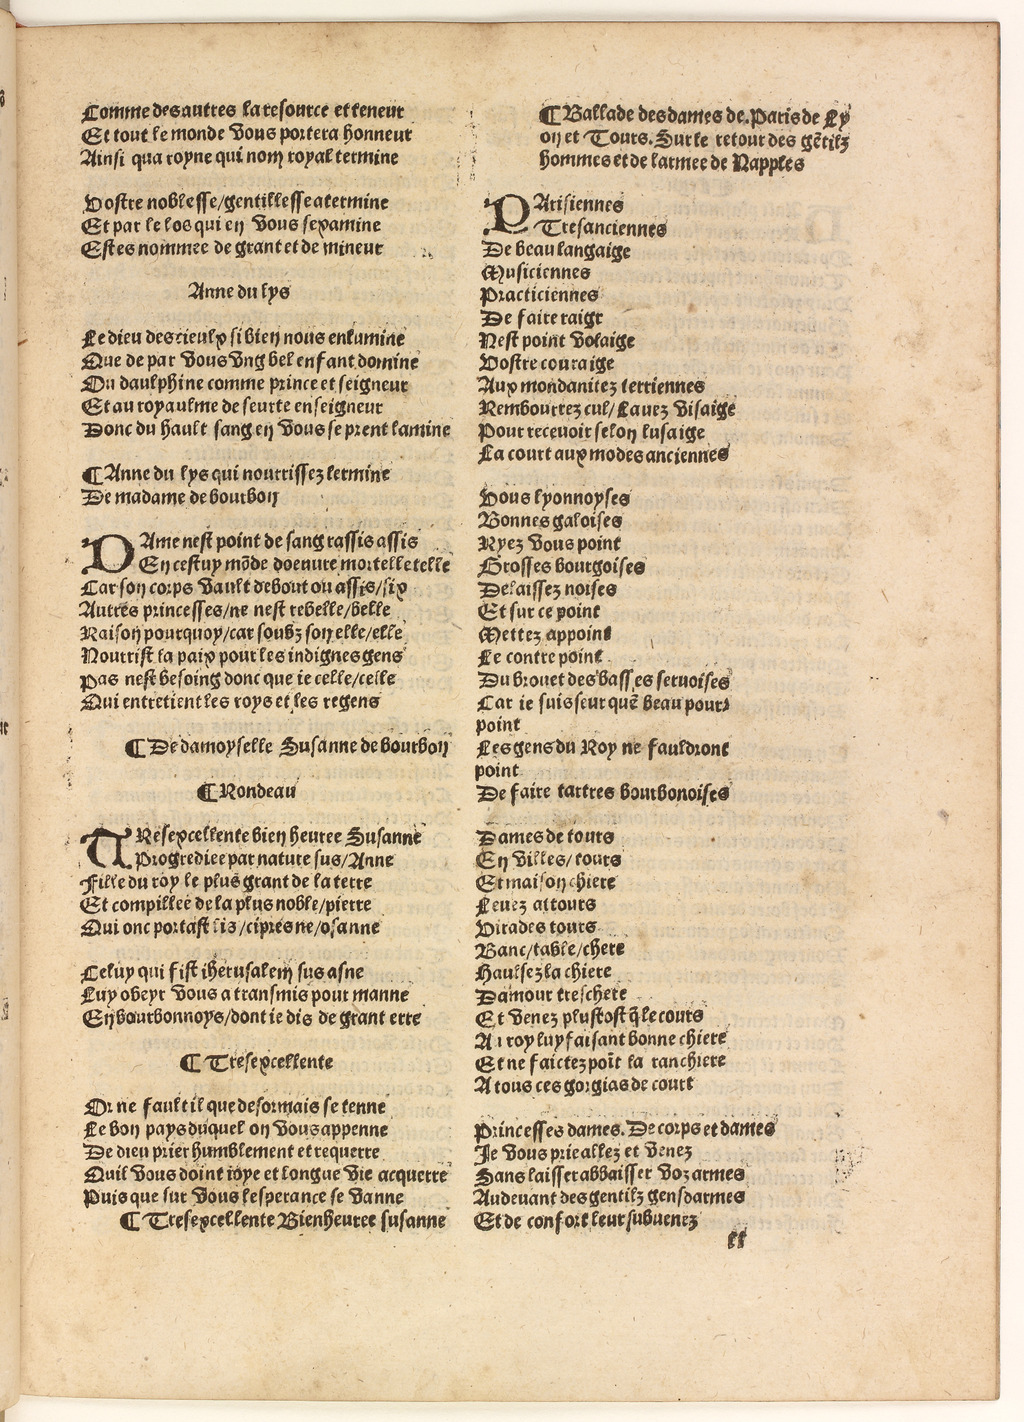 Comme des autres la resource et teneur
Et tout le monde vous portera honneur
Ainsi qua royne qui nom royal termine
Vostre noblesse/gentillesse atermine
Et par le los qui en vous sexamine
Estes nommee de grant et de mineur
Anne du lys
Le dieu des cieulx si bien nous enlumine
Que de par vous vng bel enfant domine
Ou daulphine comme prince et seigneur
Et au royaulme de seurte enseigneur
Donc du hault sang en vous se prent lamine
¶ Anne du lys qui nourrissez lermine
De madame de bourbon
DAme nest point de sang rassis assis
En cestuy mõde doenure mortelle telle
Car son corps vault debout ou assis/six
Autres princesses/ne nest rebelle/belle
Raison pourquoy/car soubz son elle/elle
Nourrist la paix pour les indignes gens
Pas nest besoing donc que ie celle/celle
Qui entretient les roys et les regens
¶ De damoyselle Susanne de bourbon
¶ Rondeau
TResexcellente bien heuree Susanne
Progrediee par nature sus/Anne
Fille du roy le plus grant de la terre
Et compillee de la plus noble/pierre
Qui onc portast lis/cipres ne/osanne
Celuy qui fist iherusalem sus asne
Luy obeyr vous a transmis pour manne
En bourbonnoys/dont ie dis de grant erre
¶ Tresexcellente
Or ne fault il que desormais se tenne
Le bon pays duquel on vous appenne
De dieu prier humblement et requerre
Quil vous doint ioye et longue vie acquerre
Puis que sur vous lesperance se vanne
¶ Tresexcellente Bienheuree susanne
¶ Ballade des dames de. Paris de Ly
on et Tours. Sur le retour des gẽtilz
hommes et de larmee de Napples
PArisiennes
Tresanciennes
De beau langaige
Musiciennes
Practiciennes
De faire raige
Nest point volaige
Vostre couraige
Aux mondanitez terriennes
Rembourrez cul/Lauez visaige
Pour receuoir selon lusaige
La court aux modes anciennes
Vous lyonnoyses
Bonnes galoises
Ryez vous point
Grosses bourgoises
Delaissez noises
Et sur ce point
Mettez appoint
Le contre point
Du brouet des basses seruoises
Car ie suis seur quẽ beau pour
point
Les gens du Roy ne fauldront
point
De faire tartres bourbonoises
Dames de tours
En villes/tours
Et maison chiere
Leuez attours
Virades tours
Banc/table/chere
Haulsez la chiere
Damour treschere
Et venez plustost q̃ le cours
Au roy luy faisant bonne chiere
Et ne faictez poĩt la ranchiere
A tous ces gorgias de court
Princesses dames. De corps et dames
Je vous prie allez et venez
Sans laisser abbaisser voz armes
Audeuant des gentilz gensdarmes
Et de confort leur subuenez
ll